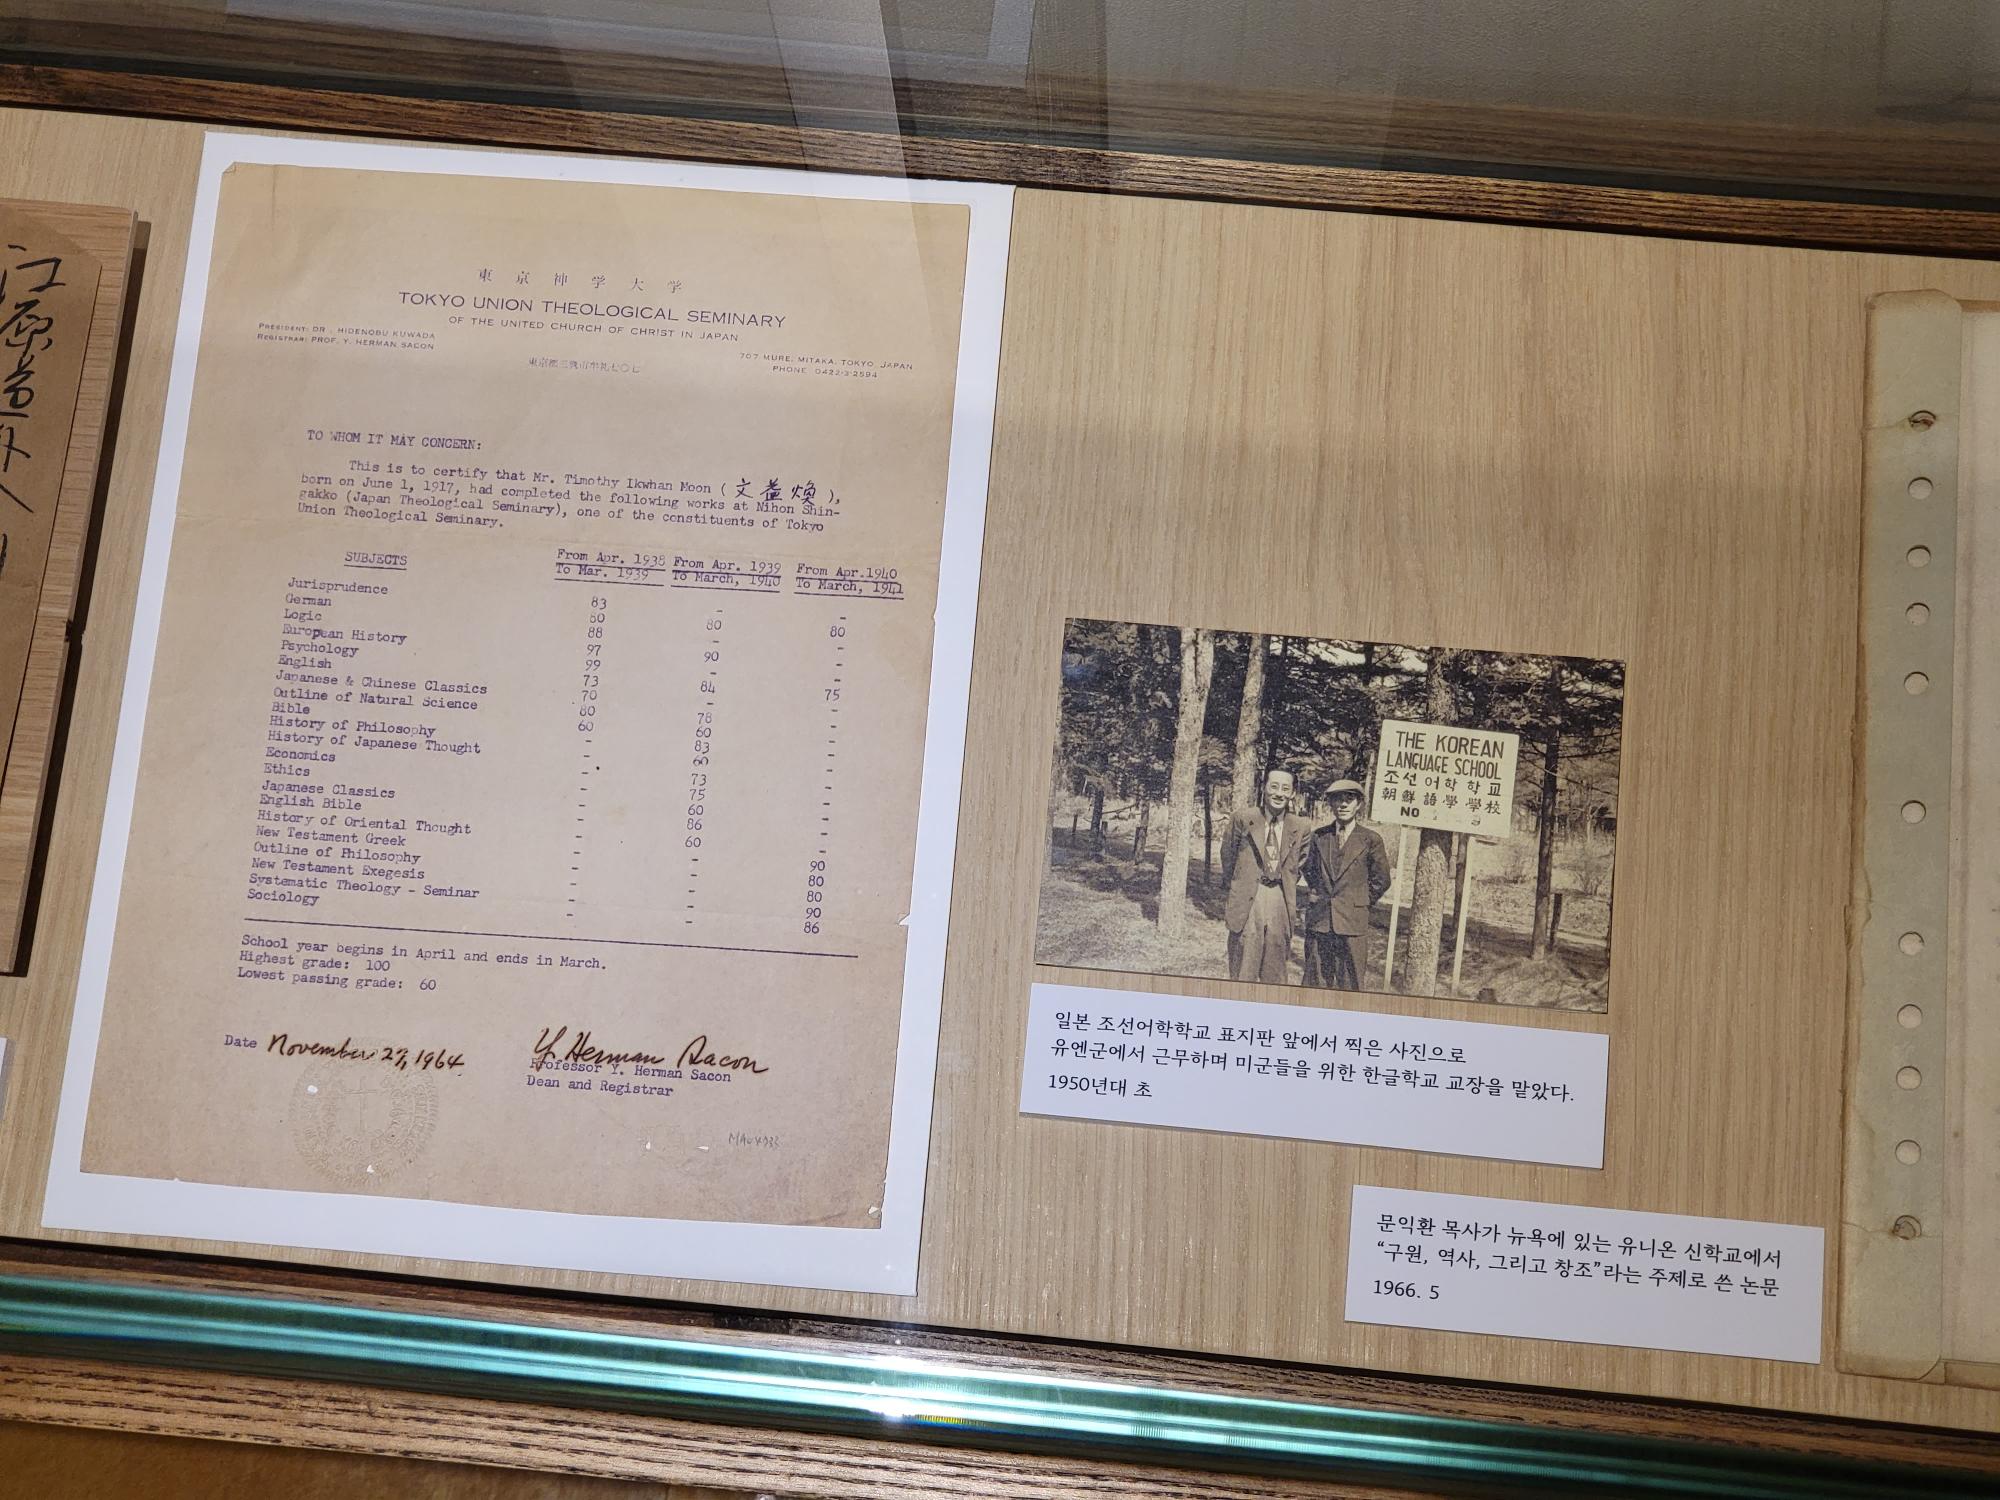 東京神学大学
TOKYO UNION THEOLOGICAL SEMINARY
OF THE UNITED CHURCH OF CHRIST IN JAPAN
PRESIDENT: DR. HIDENOBU KUWADA
REGISTRAR: PROF. Y. HERMAN SACON
東京都三鷹市牟礼七〇七
707 MURE, MITAKA, TOKYO, JAPAN
PHONE 0422-3-2594
TO WHOM IT MAY CONCERN:
This is to certify that Mr. Timothy Ikwhan Moon (文益煥),
born on June 1, 1917, had completed the following works at Nihon Shin-
gakko (Japan Theological Seminary), one of the constituents of Tokyo
Union Theological Seminary.
SUBJECTS From Apr. 1938 To Mar. 1939 From Apr. 1939 To March, 1940 From Apr.1940 To March, 1941
Jurisprudence 83 - -
German 80 80 80
Logic 88 - -
European History 97 90 -
Psychology 99 - -
English 73 84 75
Japanese & Chinese Classics 70 - -
Outline of Natural Science 80 78 -
Bible 60 60 -
History of Philosophy - 83 -
History of Japanese Thought - 60 -
Economics - 73 -
Ethics - 75 -
Japanese Classics - 60 -
English Bible - 86 -
History of Oriental Thought - 60 -
New Testament Greek - - 90
Outline of Philosophy - - 80
New Testament Exegesis - - 80
Systematic Theology - Seminar - - 90
Sociology - - 86
School year begins in April and ends in March.
Highest grade: 100
Lowest passing grade: 60
Date November 27, 1964
Y. Herman Sacon
Professor Y. Herman Sacon
Dean and Registrar
THE KOREAN
LANGUAGE SCHOOL
조선어학학교
朝鮮語學學校
NO
일본 조선어학학교 표지판 앞에서 찍은 사진으로
유엔군에서 근무하며 미군들을 위한 한글학교 교장을 맡았다.
1950년대 초
문익환 목사가 뉴욕에 있는 유니온 신학교에서
“구원, 역사, 그리고 창조”라는 주제로 쓴 논문
1966. 5